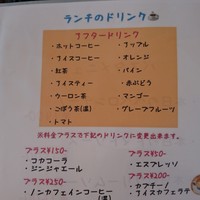 ランチのドリンク
アフタードリンク
・ホットコーヒー
・アイスコーヒー
・紅茶
・アイスティー
・ウーロン茶
・ごぼう茶(温)
・トマト
・アップル
・オレンジ
・パイン
・赤ぶどう
・マンゴー
・グレープフルーツ
※料金プラスで下記のドリンクに変更出来ます。
プラス¥150-
・コカコーラ
・ジンジャエール
プラス¥250-
・ノンカフェインコーヒー
プラス¥50-
・エスプレッソ
プラス¥200-
・カプチーノ
・アイスカフェラテ